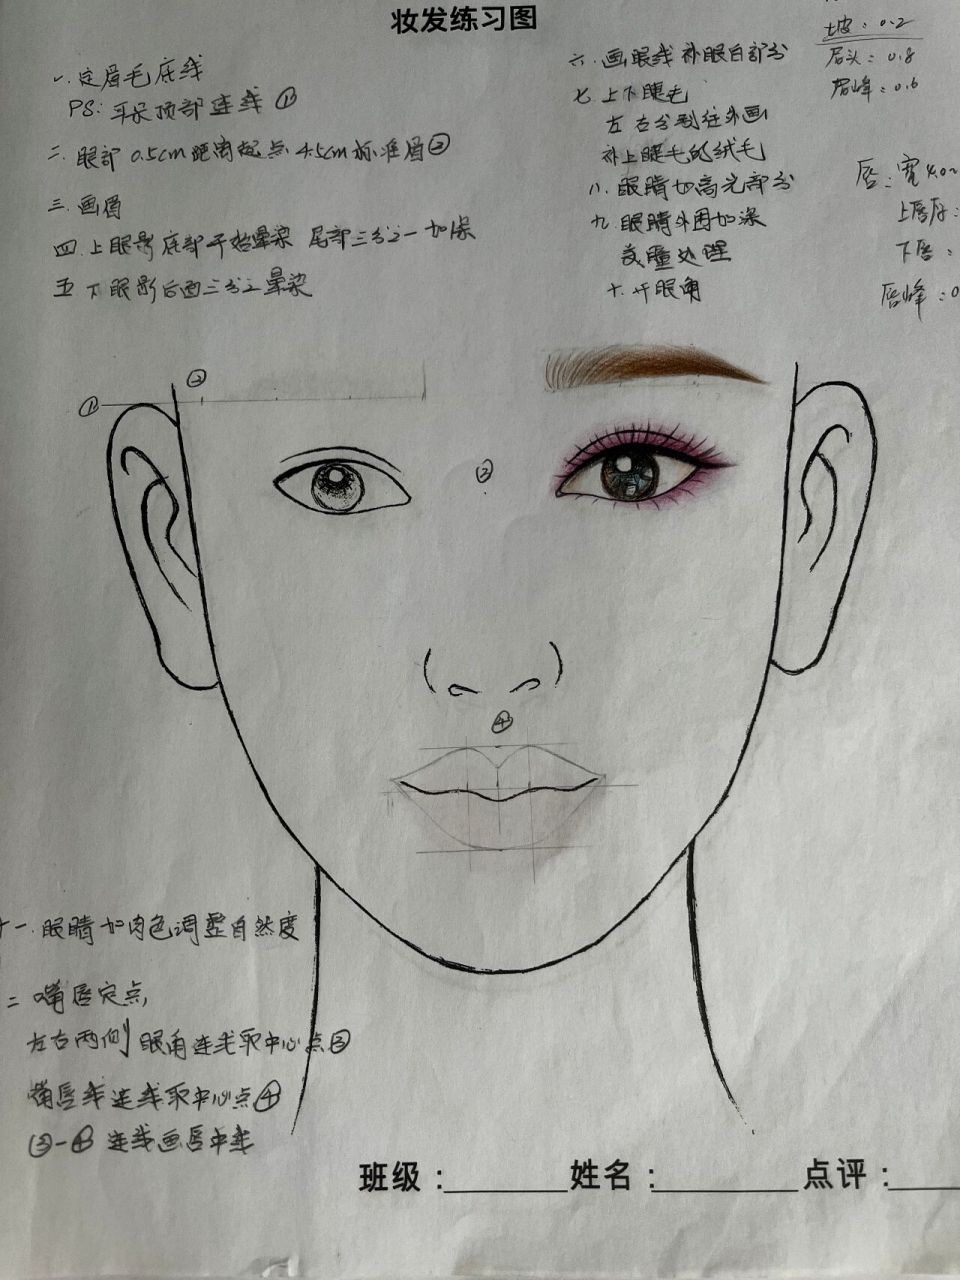 妆发练习图
一. 定眉毛底线
PS: 耳朵顶部连线 ①
二. 眼部 0.5cm 距离起点 4.5cm 标准眉②
三. 画眉
四. 上眼影底部开始晕染 尾部三分之一加深
五 下眼影后面三分之晕染
六. 画眼线 补眼白部分
七. 上下睫毛
左右分别往外画
补上睫毛的绒毛
八. 眼睛加高光部分
九. 眼睛外围加深
美瞳处理
十. 开眼角
坡: 0.2
眉头: 0.8
眉峰: 0.6
唇: 宽4.0
上唇厚:
下唇:
唇峰: 0
①
②
③
④
十一. 眼睛加肉色调整自然度
二 嘴唇定点
左右两侧眼角连线取中心点③
嘴唇线连线取中心点④
③-④ 连线画唇中线
班级：
姓名：
点评：